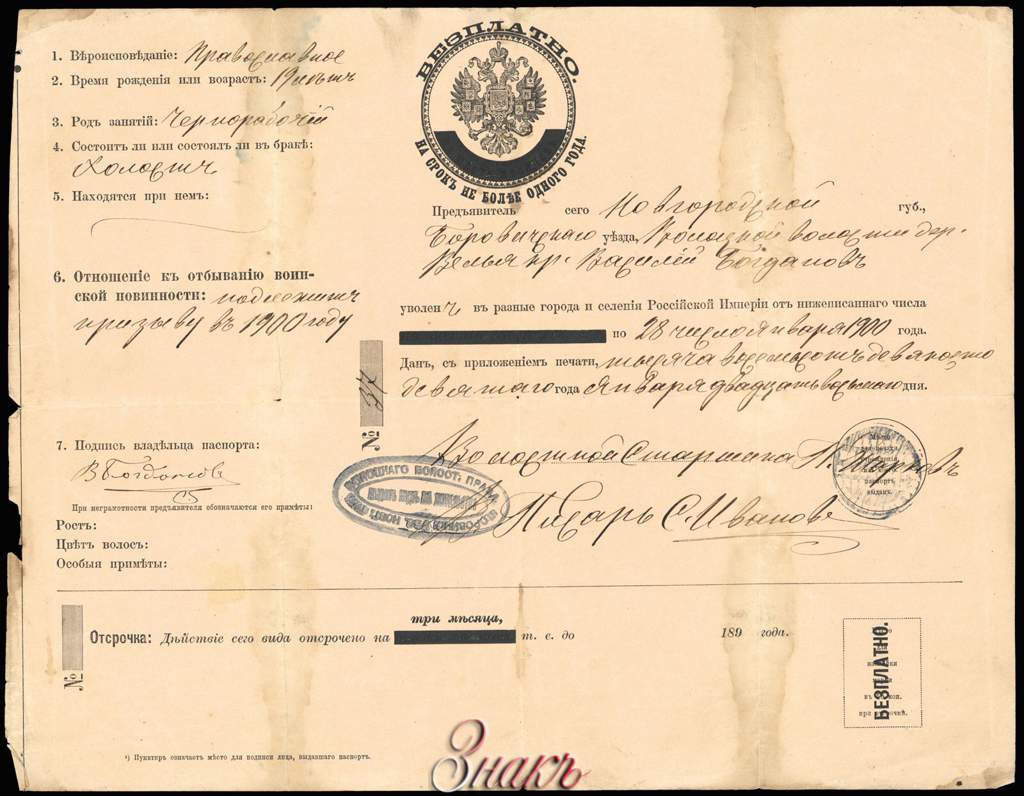 БЕЗПЛАТНО.
НА СРОКЪ НЕ БОЛѢЕ ОДНОГО ГОДА.
1. Вѣроисповѣданіе: Православное
2. Время рожденія или возрастъ: 19 лѣтъ
3. Родъ занятій: Чернорабочій
4. Состоитъ ли или состоялъ ли въ бракѣ:
Холостъ
5. Находятся при немъ:
6. Отношеніе къ отбыванію воин-
ской повинности: подлежитъ
призыву въ 1900 году
7. Подпись владѣльца паспорта:
В Богдановъ
При неграмотности предъявителя обозначаются его примѣты:
Ростъ:
Цвѣтъ волосъ:
Особыя примѣты:
Предъявитель сего Новгородской губ.,
Боровичскаго уѣзда, волости дер.
кр. Василій Богдановъ
уволенъ въ разные города и селенія Россійской Имперіи отъ нижеписаннаго числа
по 28 число Января 1900 года.
Данъ, съ приложеніемъ печати, тысяча восемьсотъ девяносто
девятаго года Января двадцать восьмого дня.
№ 57
Волостной Старшина
Писарь С. Ивановъ
Мѣсто
паспортъ
выданъ.
Отсрочка: Дѣйствіе сего вида отсрочено на три мѣсяца, т. е. до 189 года.
№
БЕЗПЛАТНО.
¹) Пунктиръ означаетъ мѣсто для подписи лица, выдавшаго паспортъ.
Знакъ